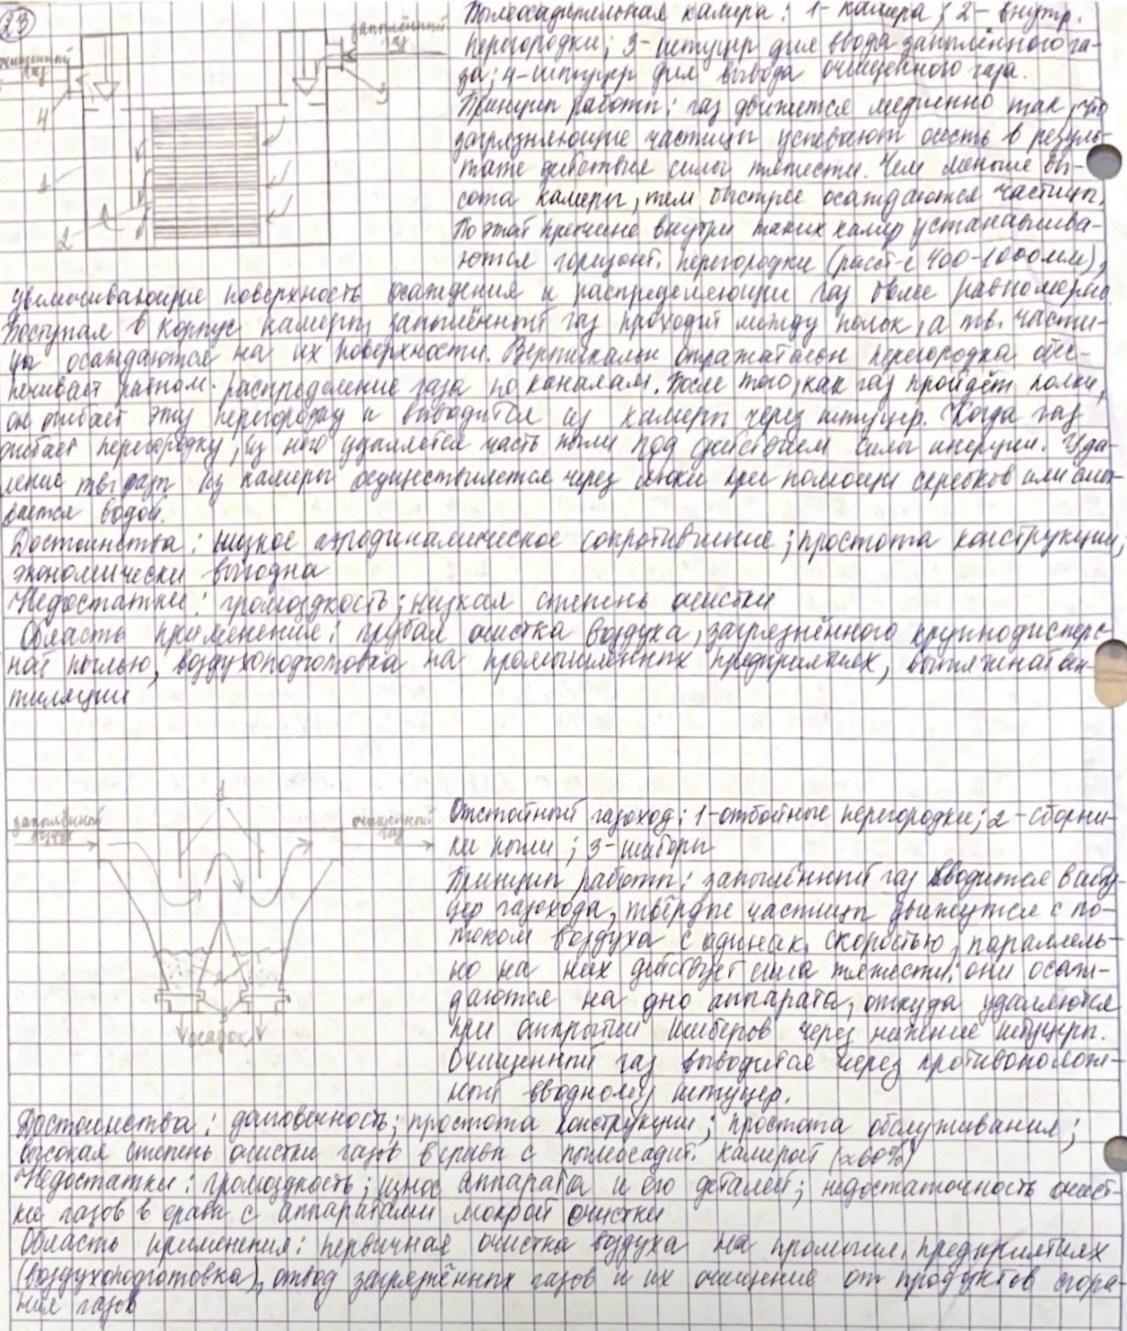 23
Пылеосадительная камера: 1- камера; 2- внутр.
запылённый
газ
очищенный
газ
перегородки; 3-штуцер для ввода запылённого га-
за; 4-штуцер для вывода очищенного газа.
3
4
1
2
Принцип работы: газ движется медленно так, что
загрязняющие частицы успевают осесть в резуль-
тате действия силы тяжести. Чем меньше вы-
сота камеры, тем быстрее осаждаются частицы.
По этой причине внутри таких камер устанавлива-
ются горизонт. перегородки (расст-е 400-1000мм),
увеличивающие поверхность осаждения и распределяющие газ более равномерно.
Поступая в корпус камеры, запылённый газ проходит между полок, а тв. части-
цы осаждаются на их поверхности. Вертикальн отражательн перегородка обес-
печивает равном. распределение газа по каналам. После того, как газ пройдёт полки,
он огибает эту перегородку и выводится из камеры через штуцер. Когда газ
огибает перегородку, из него удаляется часть пыли под действием силы инерции. Уда-
ление тв. из камеры осуществляется через люки при помощи скребков или смы-
вается водой.
Достоинства: низкое аэродинамическое сопротивление; простота конструкции;
экономически выгодна
Недостатки: громоздкость; низкая степень очистки
Область применения: грубая очистка воздуха, загрязнённого крупнодисперс-
ной пылью, воздухоподготовка на промышленных предприятиях, вытяжной вен-
тиляции
1
запылённый
воздух
очищенный
газ
2
3
осадок
Отстойный газоход: 1-отбойные перегородки; 2-сборни-
ки пыли; 3-шиберы
Принцип работы: запылённый газ вводится в шту-
цер газохода, твёрдые частицы движутся с по-
током воздуха с одинак. скоростью, параллель-
но на них действует сила тяжести: они осаж-
даются на дно аппарата, откуда удаляются
при открытии шиберов через нижние штуцеры.
Очищенный газ выводится через противополож-
ный вводному штуцер.
Достоинства: долговечность; простота конструкции; простота обслуживания;
высокая степень очистки газов в сравн с пылеосадит. камерой (≈60%)
Недостатки: громоздкость; износ аппарата и его деталей; недостаточность очист-
ки газов в сравн с аппаратами мокрой очистки
Область применения: первичная очистка воздуха на промышл. предприятиях
(воздухоподготовка), отвод загрязнённых газов и их очищение от продуктов сгора-
ния газов